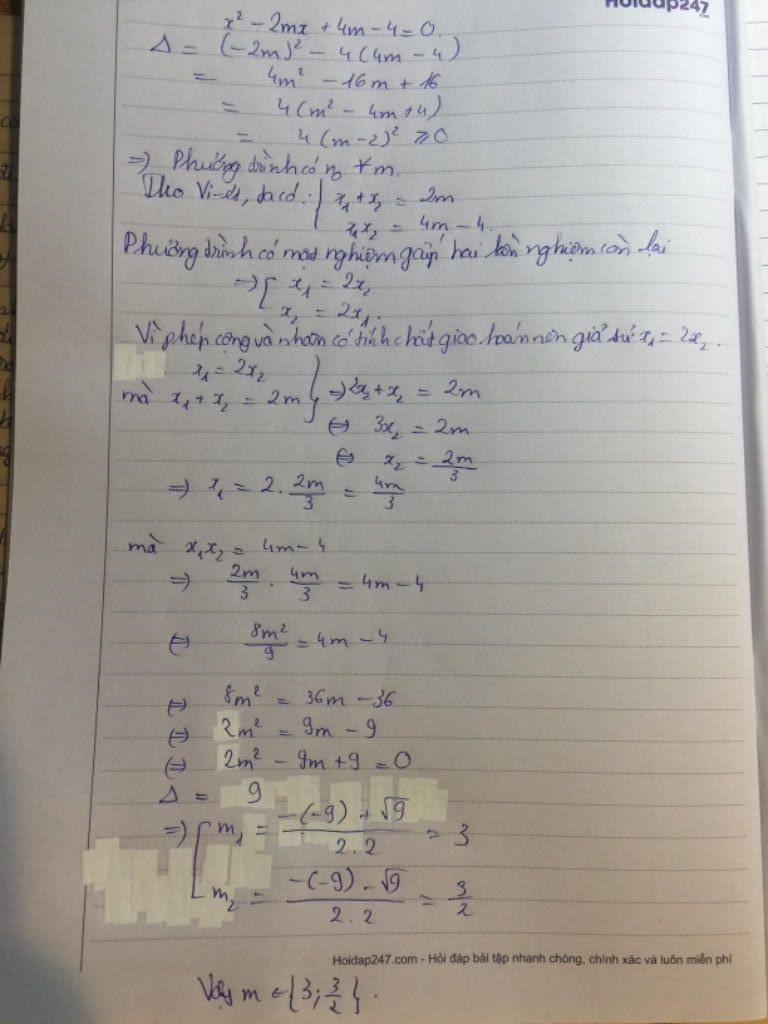 Hoidap247
x² - 2mx + 4m - 4 = 0.
Δ = (-2m)² - 4(4m - 4)
= 4m² - 16m + 16
= 4(m² - 4m + 4)
= 4(m - 2)² ⩾ 0
=> Phương trình có n₀ ∀m.
Theo Vi-ét, ta có: { x₁ + x₂ = 2m
x₁x₂ = 4m - 4.
Phương trình có một nghiệm gấp hai lần nghiệm còn lại
=> [ x₁ = 2x₂
x₂ = 2x₁.
Vì phép cộng và nhân có tính chất giao hoán nên giả sử x₁ = 2x₂.
x₁ = 2x₂
mà x₁ + x₂ = 2m } => 2x₂ + x₂ = 2m
⇔ 3x₂ = 2m
⇔ x₂ = 2m/3
=> x₁ = 2 . 2m/3 = 4m/3
mà x₁x₂ = 4m - 4
=> 2m/3 . 4m/3 = 4m - 4
⇔ 8m²/9 = 4m - 4
⇔ 8m² = 36m - 36
⇔ 2m² = 9m - 9
⇔ 2m² - 9m + 9 = 0
Δ = 9
=> [ m₁ = (-(-9) + √9)/(2.2) = 3
m₂ = (-(-9) - √9)/(2.2) = 3/2
Hoidap247.com - Hỏi đáp bài tập nhanh chóng, chính xác và luôn miễn phí
Vậy m ∈ {3; 3/2}.